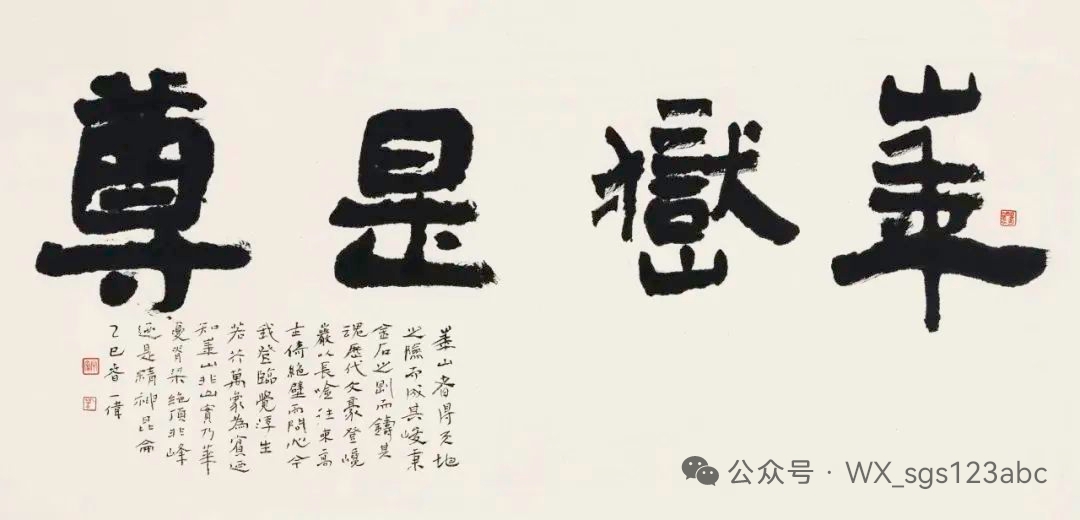 崋嶽是尊
崋山者得天地
之險而成其峻秉
金石之剛而鑄其
魂歷代文豪登嶢
巖以長唫往來高
士倚絕壁而問心今
我登臨覺浮生
若芥萬象為賓迺
知崋山非山實乃華
夏脊梁絕頂非峰
迺是精神昆侖
乙巳春一偉
公众号 · WX_sgs123abc